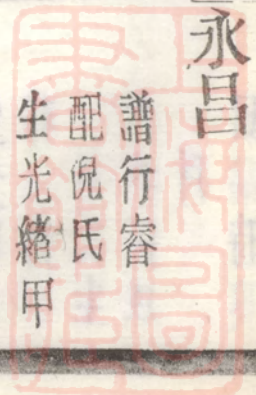 永昌
譜行睿
配倪氏
生光緒甲